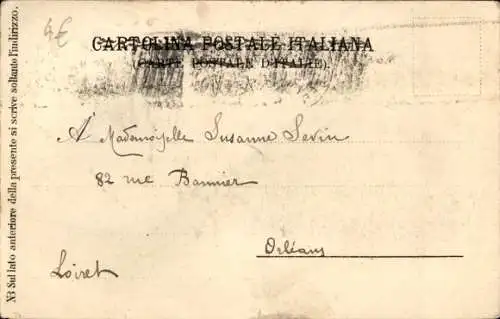 4€
CARTOLINA POSTALE ITALIANA
(CARTE POSTALE D'ITALIE).
A Mademoiselle Susanne Savin
82 rue Bannier
Orléans
Loiret
NB Sul lato anteriore della presente si scrive soltanto l'indirizzo.